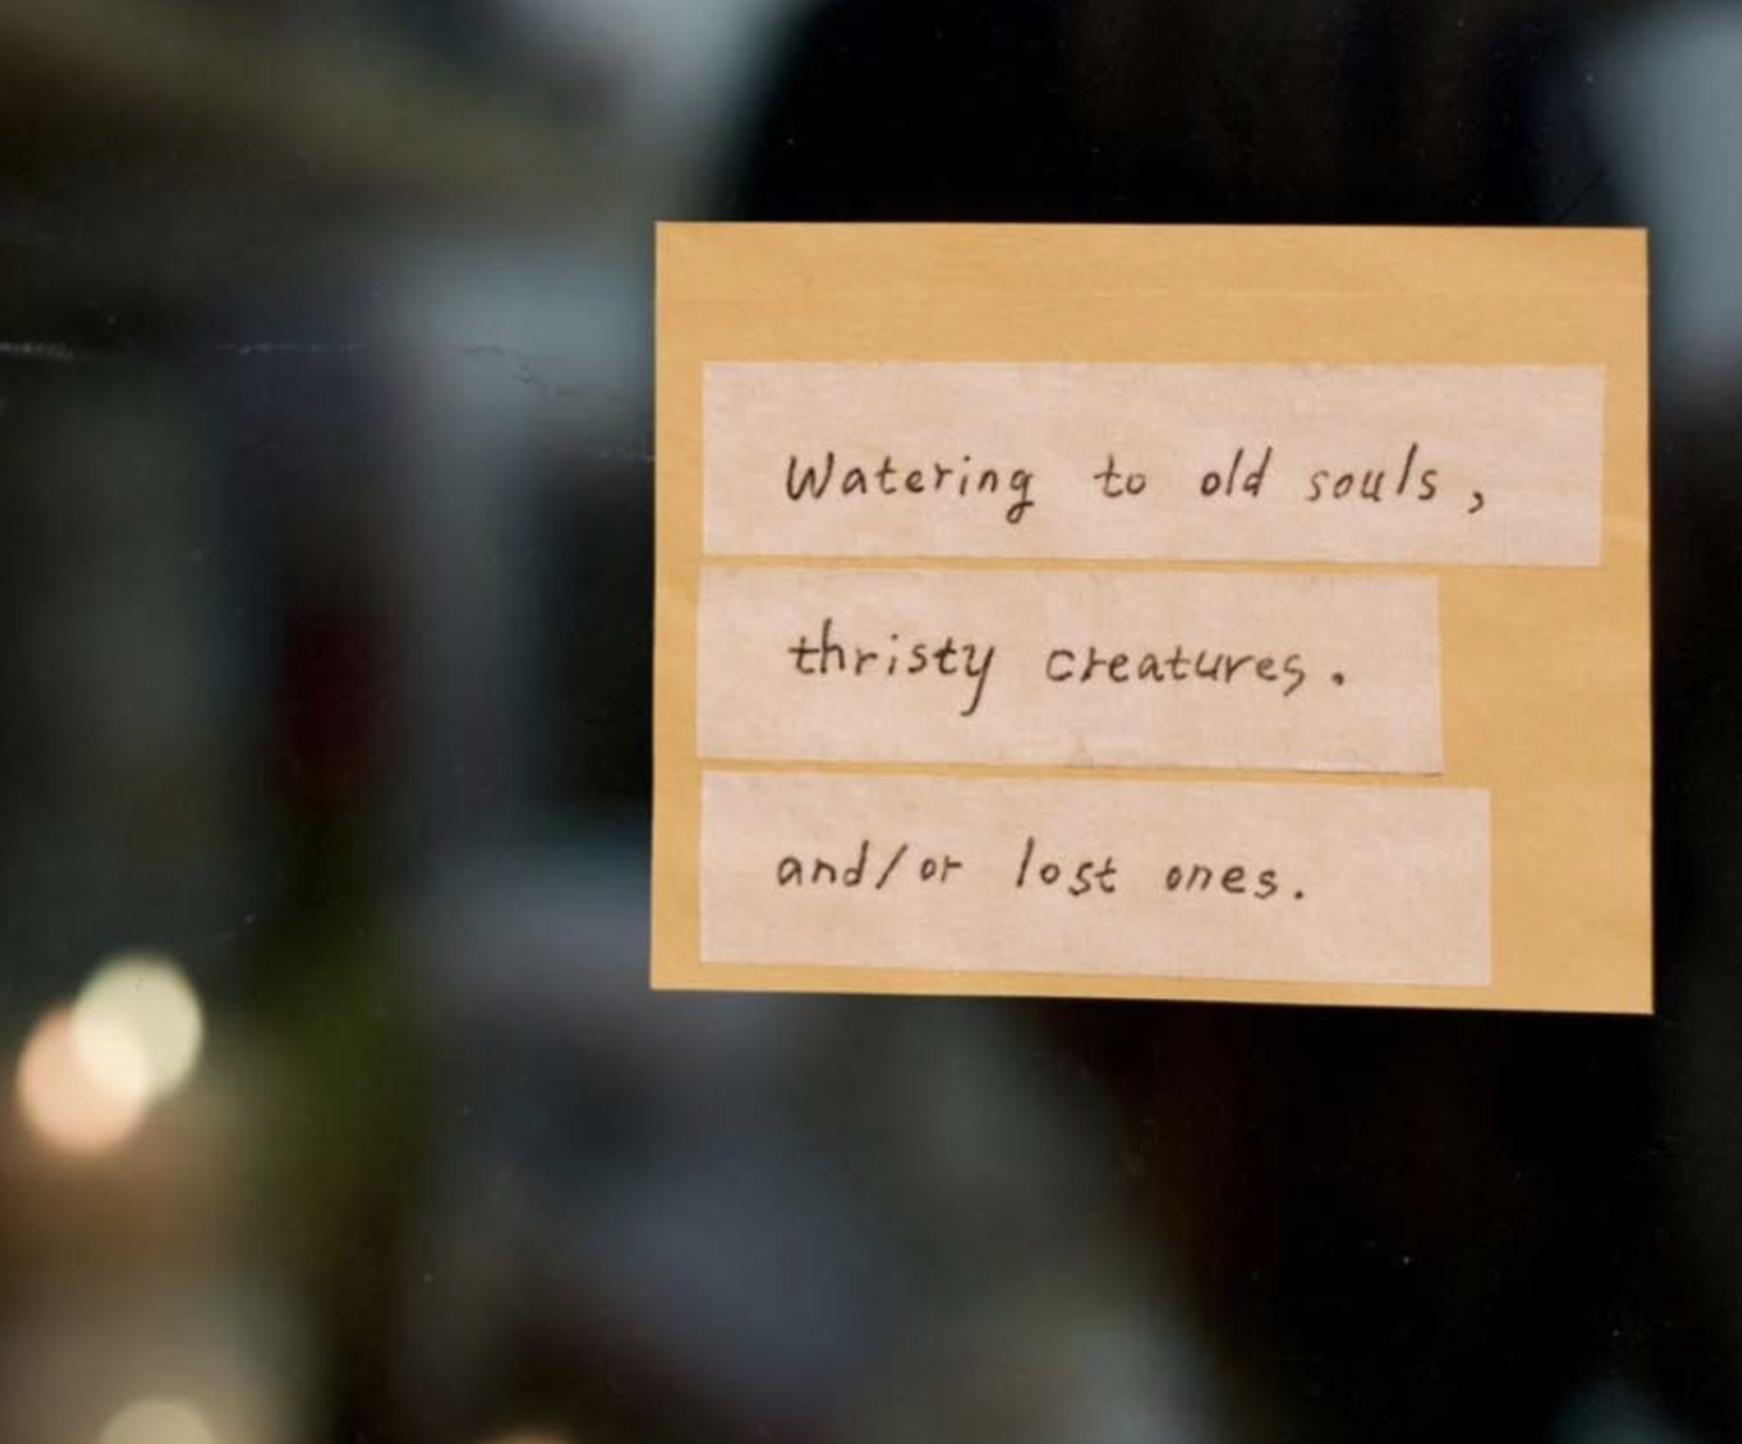 Watering to old souls,
thristy creatures.
and/or lost ones.